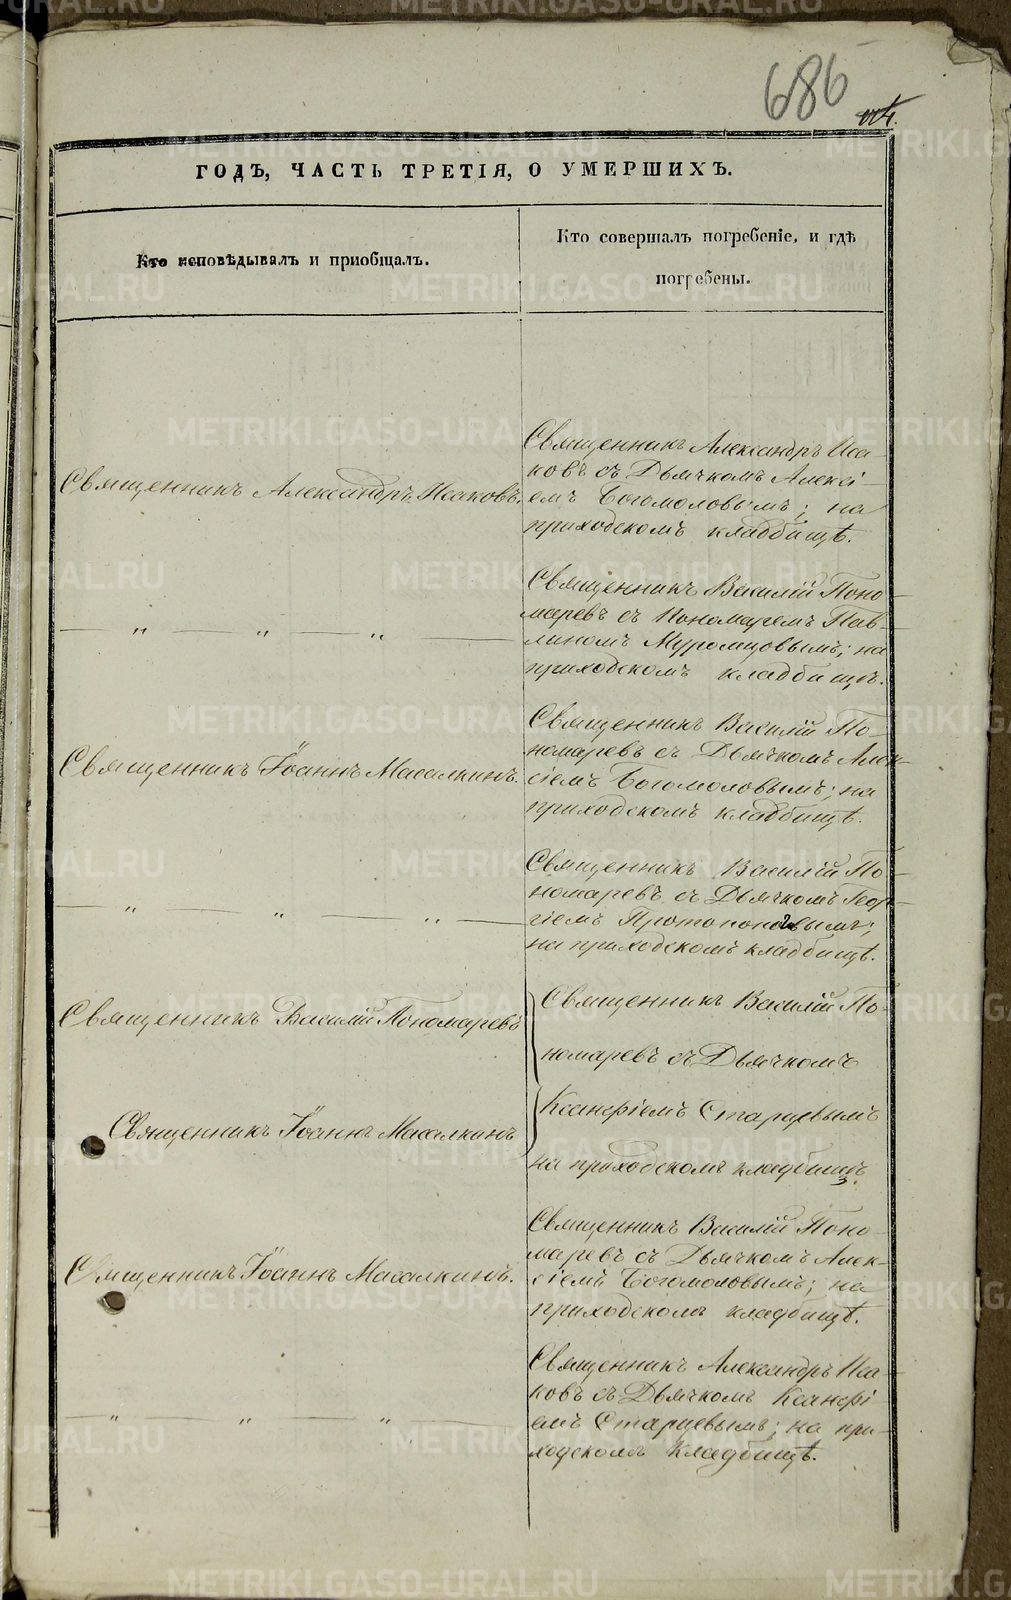 686
ГОДЪ, ЧАСТЬ ТРЕТІЯ, О УМЕРШИХЪ.
Кто исповѣдывалъ и приобщалъ.
Кто совершалъ погребеніе, и гдѣ
погребены.
Священникъ Александръ Исаковъ.
Священникъ Александръ Иса-
ковъ съ Дьячкомъ Алексі-
емъ Богомоловымъ; на
приходскомъ кладбищѣ.
— „ — „ — „ —
Священникъ Василій Поно-
маревъ съ Пономаремъ Пав-
линомъ Муромцовымъ; на
приходскомъ кладбищѣ.
Священникъ Іоаннъ Масалкинъ.
Священникъ Василій По-
номаревъ съ Дьячкомъ Алек-
сіемъ Богомоловымъ; на
приходскомъ кладбищѣ.
— „ — „ — „ —
Священникъ Василій По-
номаревъ съ Дьячкомъ Геор-
гіемъ Протопоповымъ;
на приходскомъ кладбищѣ.
Священникъ Василій Пономаревъ
Священникъ Василій По-
номаревъ съ Дьячкомъ
Священникъ Іоаннъ Масалкинъ
Ксанфіемъ Старцевымъ
на приходскомъ кладбищѣ.
Священникъ Іоаннъ Масалкинъ.
Священникъ Василій Поно-
маревъ съ Дьячкомъ Алек-
сіемъ Богомоловымъ; на
приходскомъ кладбищѣ.
— „ — „ — „ —
Священникъ Александръ Иса-
ковъ съ Дьячкомъ Ксанфі-
емъ Старцевымъ; на при-
ходскомъ кладбищѣ.
METRIKI.GASO-URAL.RU